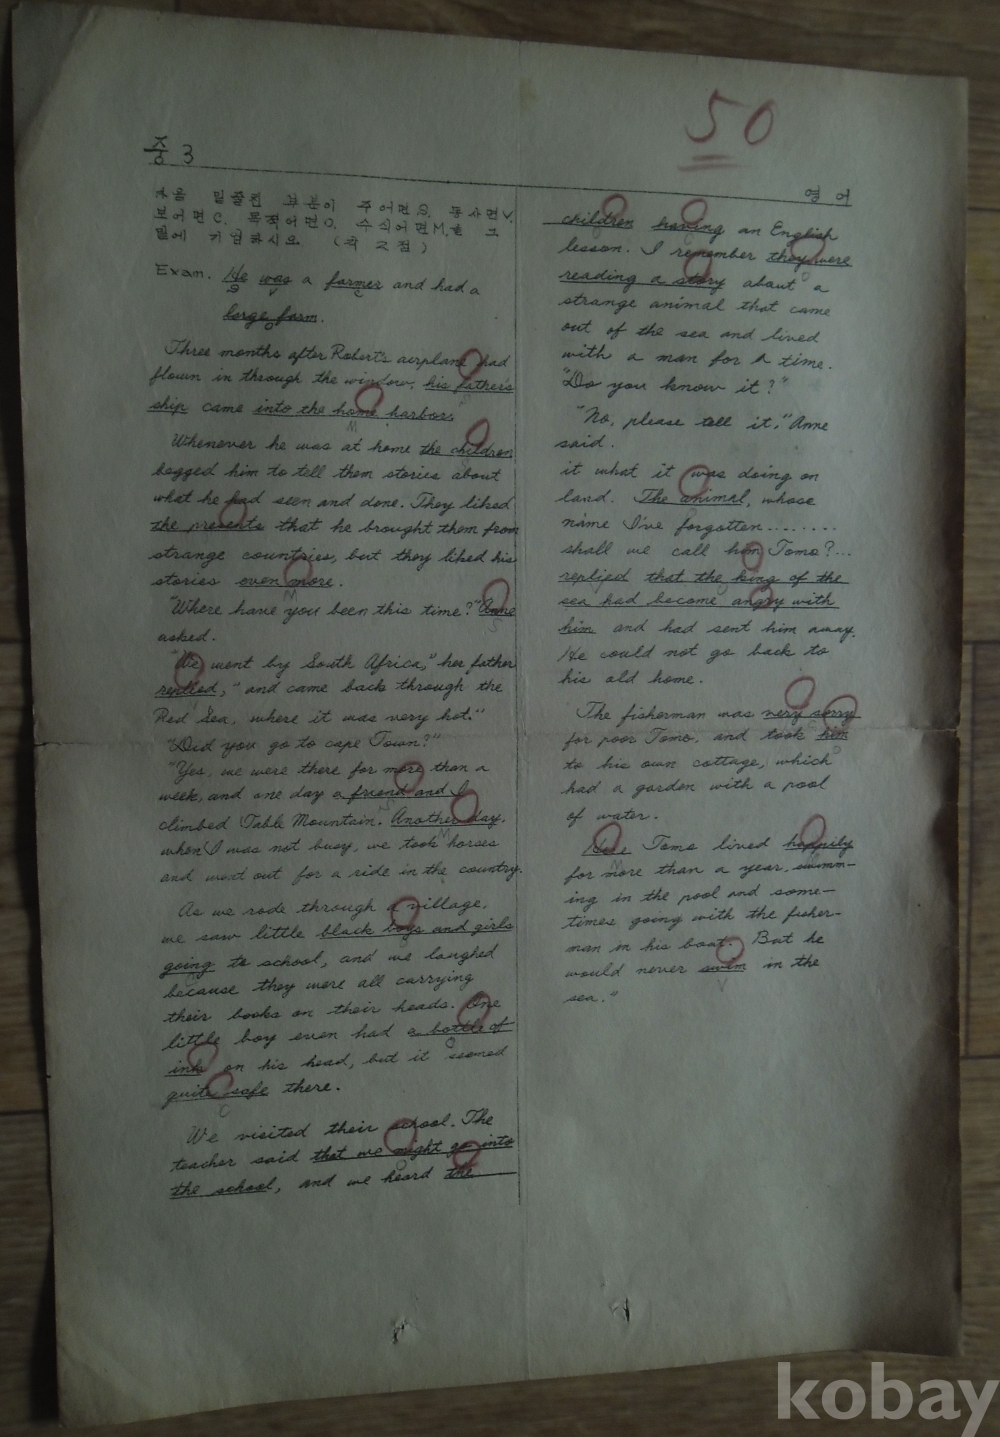 50
중 3
영어
다음 밑줄친 부분이 주어면 S, 동사면 V,
보어면 C, 목적어면 O, 수식어면 M,을 그
밑에 기입하시오. (각 2점)
Exam. He was a farmer and had a
S V C
large farm.
O
Three months after Robert's airplane had
flown in through the window, his father's
S
ship came into the home harbor.
M
Whenever he was at home the children
begged him to tell them stories about
what he had seen and done. They liked
the presents that he brought them from
strange countries, but they liked his
stories even more.
M
"Where have you been this time?" Anne
S
asked.
"We went by South Africa," her father
replied, "and came back through the
Red Sea, where it was very hot."
"Did you go to cape Town?"
"Yes, we were there for more than a
week, and one day a friend and I
S
climbed Table Mountain. Another day,
M
when I was not busy, we took horses
and went out for a ride in the country.
As we rode through a village,
we saw little black boys and girls
going to school, and we laughed
because they were all carrying
their books on their heads. One
little boy even had a bottle of
O
ink on his head, but it seemed
quite safe there.
C
We visited their school. The
teacher said that we might go into
O
the school, and we heard the
children having an English
lesson. I remember they were
O
reading a story about a
strange animal that came
out of the sea and lived
with a man for a time.
"Do you know it?"
"No, please tell it," Anne
said.
it what it was doing on
land. The animal, whose
name I've forgotten........
shall we call him Tomo?...
replied that the king of the
sea had become angry with
him and had sent him away.
He could not go back to
his old home.
The fisherman was very sorry
for poor Tomo, and took him
O
to his own cottage, which
had a garden with a pool
of water.
Here Tomo lived happily
M
for more than a year, swimm-
ing in the pool and some-
times going with the fisher-
man in his boat. But he
would never swim in the
V
sea."
kobay